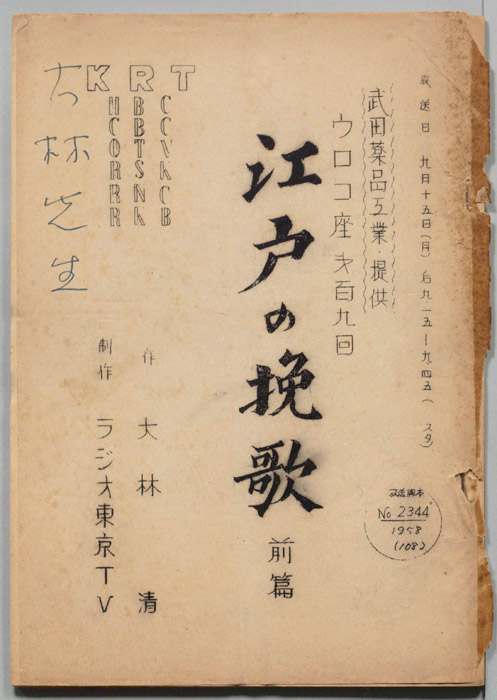 放送日 九月十五日(月) 后九・一五―九・四五( スタ)
武田薬品工業・提供
ウロコ座 才百九回
江戸の挽歌 前篇
放送脚本
No 2344
1958
作 大林 清
制作 ラジオ東京TV
KRT
HCORRR
BBTSNK
CCVKCB
大林先生